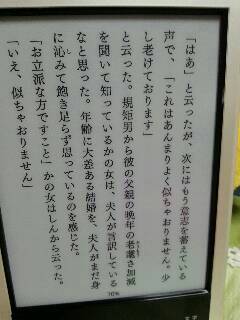 「はあ」と云ったが、次にはもう意志を蓄えている
声で、「これはあんまりよく似ちゃおりません。少
し老けております」
と云った。規矩男から彼の父親の晩年の老耄さ加減
を聞いて知っているかの女は、夫人が言訳している
なと思った。年齢に大差ある結婚を、夫人がまだ身
に沁みて飽き足らず思っているのを感じた。
「お立派な方ですこと」かの女はしんから云った。
「いえ、似ちゃおりません」
70%